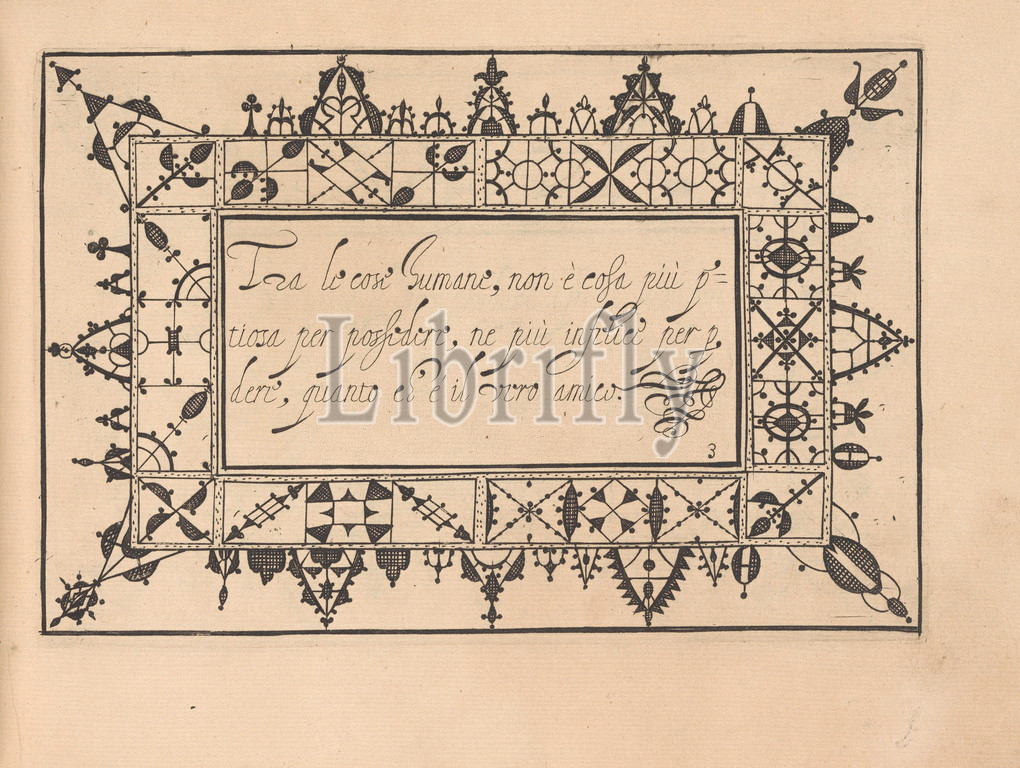 Tra le cose humane, non è coſa più p=
tiosa per poſsedere, ne più infelice per p
dere, quanto è il vero amico.
Librifly
3